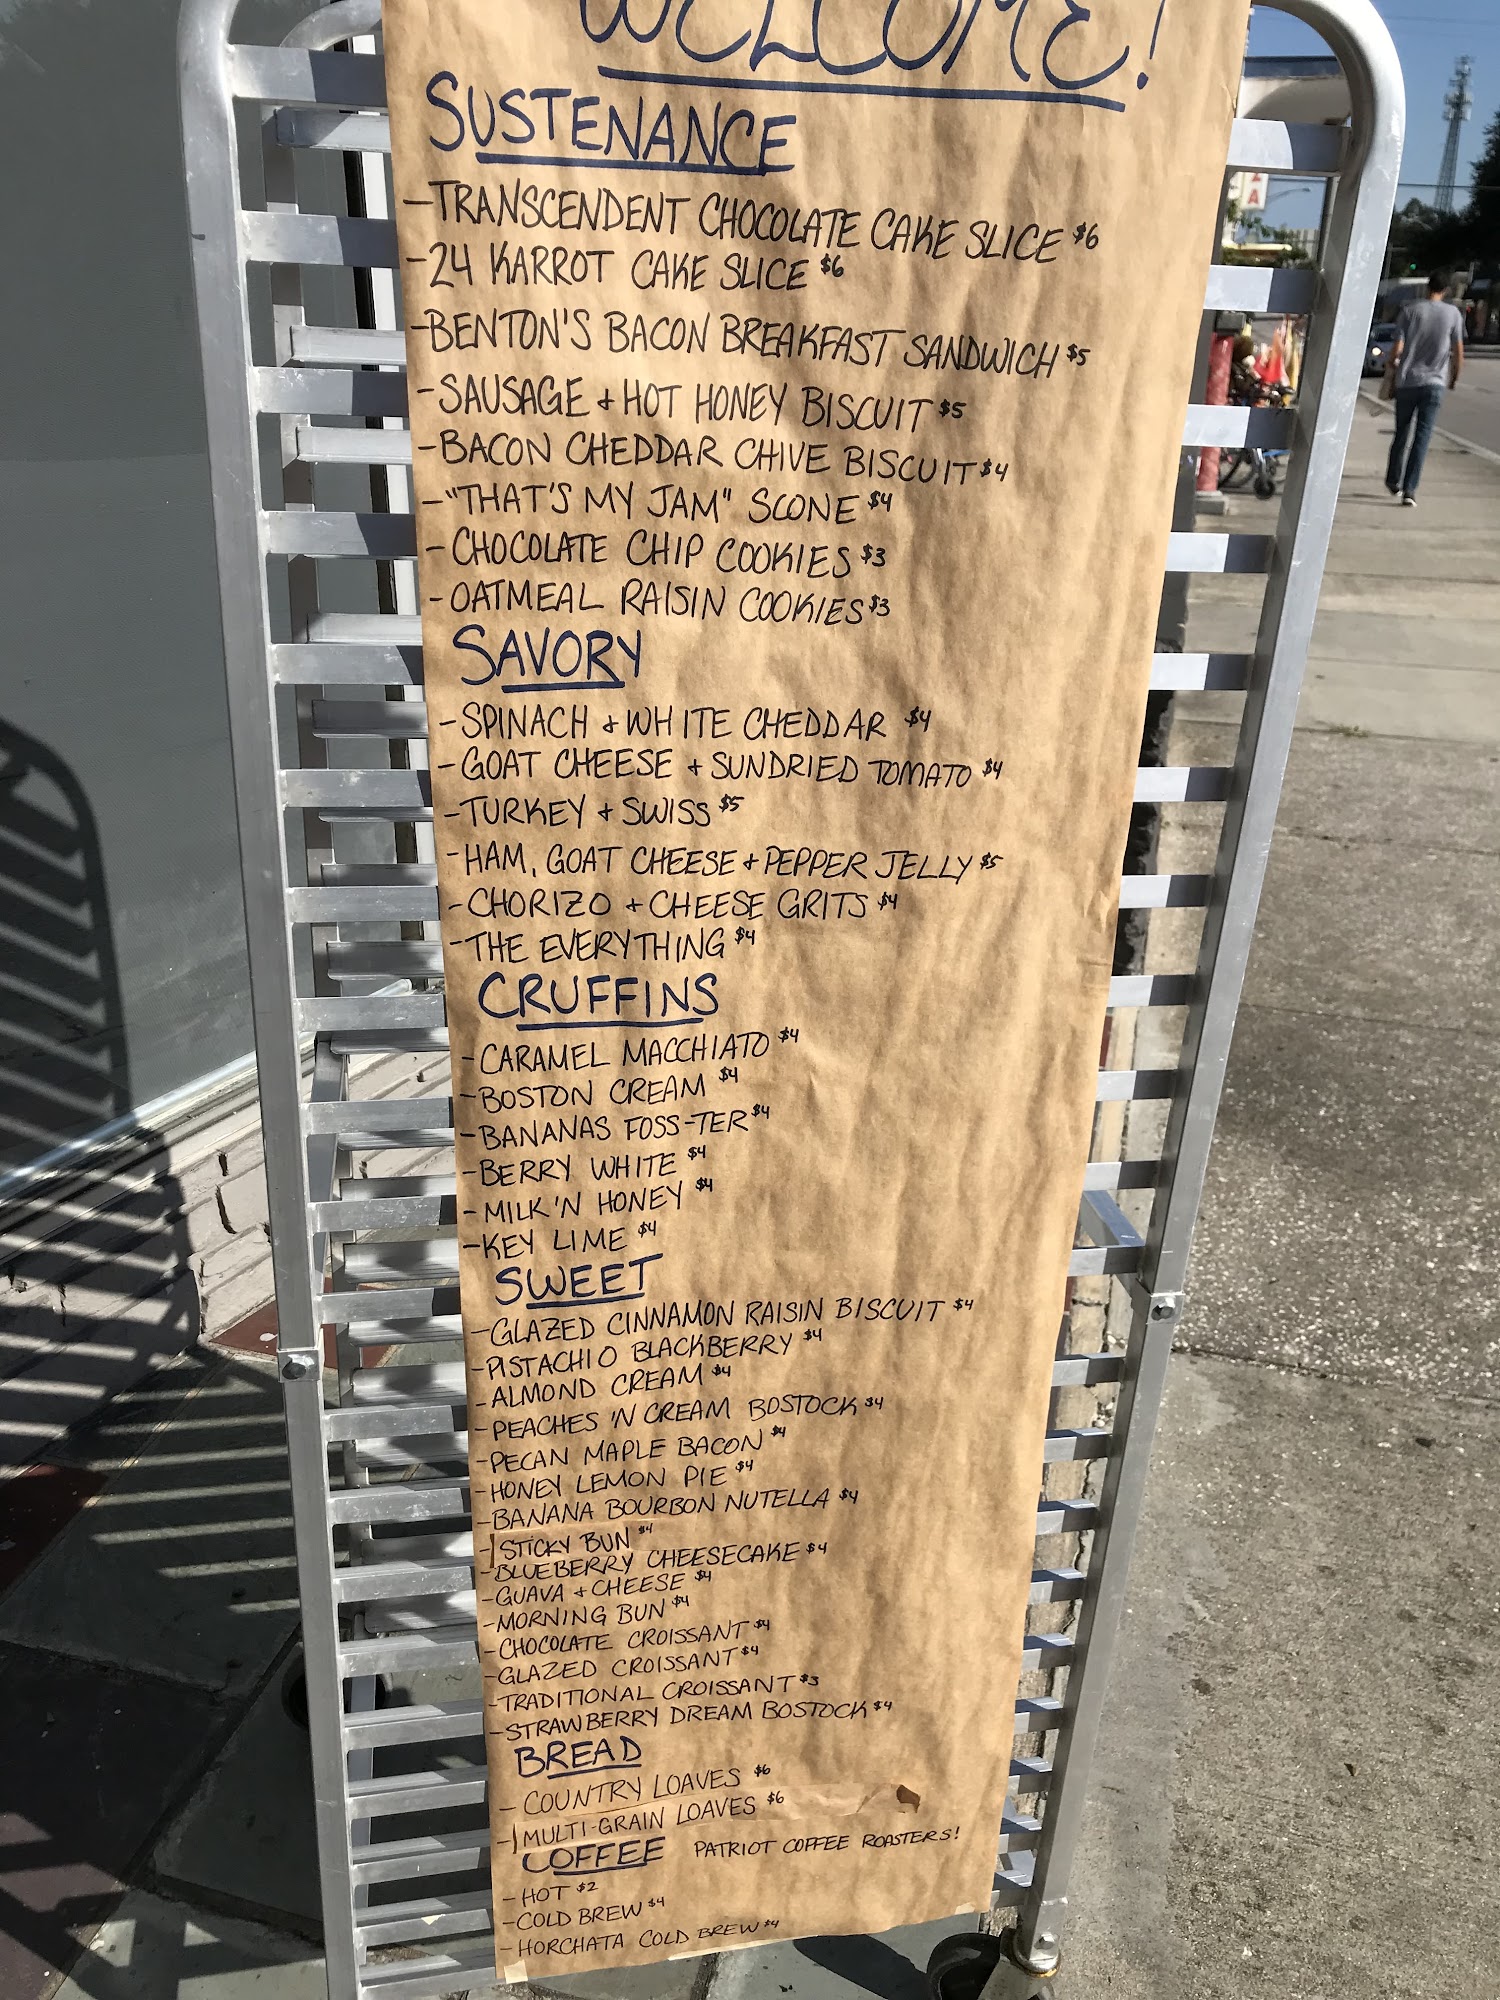 WELCOME!
SUSTENANCE
-TRANSCENDENT CHOCOLATE CAKE SLICE $6
-24 KARROT CAKE SLICE $6
-BENTON'S BACON BREAKFAST SANDWICH $5
-SAUSAGE + HOT HONEY BISCUIT $5
-BACON CHEDDAR CHIVE BISCUIT $4
-"THAT'S MY JAM" SCONE $4
-CHOCOLATE CHIP COOKIES $3
-OATMEAL RAISIN COOKIES $3
SAVORY
-SPINACH + WHITE CHEDDAR $4
-GOAT CHEESE + SUNDRIED TOMATO $4
-TURKEY + SWISS $5
-HAM, GOAT CHEESE + PEPPER JELLY $5
-CHORIZO + CHEESE GRITS $4
-THE EVERYTHING $4
CRUFFINS
-CARAMEL MACCHIATO $4
-BOSTON CREAM $4
-BANANAS FOSS-TER $4
-BERRY WHITE $4
-MILK 'N HONEY $4
-KEY LIME $4
SWEET
-GLAZED CINNAMON RAISIN BISCUIT $4
-PISTACHIO BLACKBERRY $4
-ALMOND CREAM $4
-PEACHES 'N CREAM BOSTOCK $4
-PECAN MAPLE BACON $4
-HONEY LEMON PIE $4
-BANANA BOURBON NUTELLA $4
-STICKY BUN $4
-BLUEBERRY CHEESECAKE $4
-GUAVA + CHEESE $4
-MORNING BUN $4
-CHOCOLATE CROISSANT $4
-GLAZED CROISSANT $4
-TRADITIONAL CROISSANT $3
-STRAWBERRY DREAM BOSTOCK $4
BREAD
-COUNTRY LOAVES $6
-MULTI-GRAIN LOAVES $6
COFFEE PATRIOT COFFEE ROASTERS!
-HOT $2
-COLD BREW $4
-HORCHATA COLD BREW $4